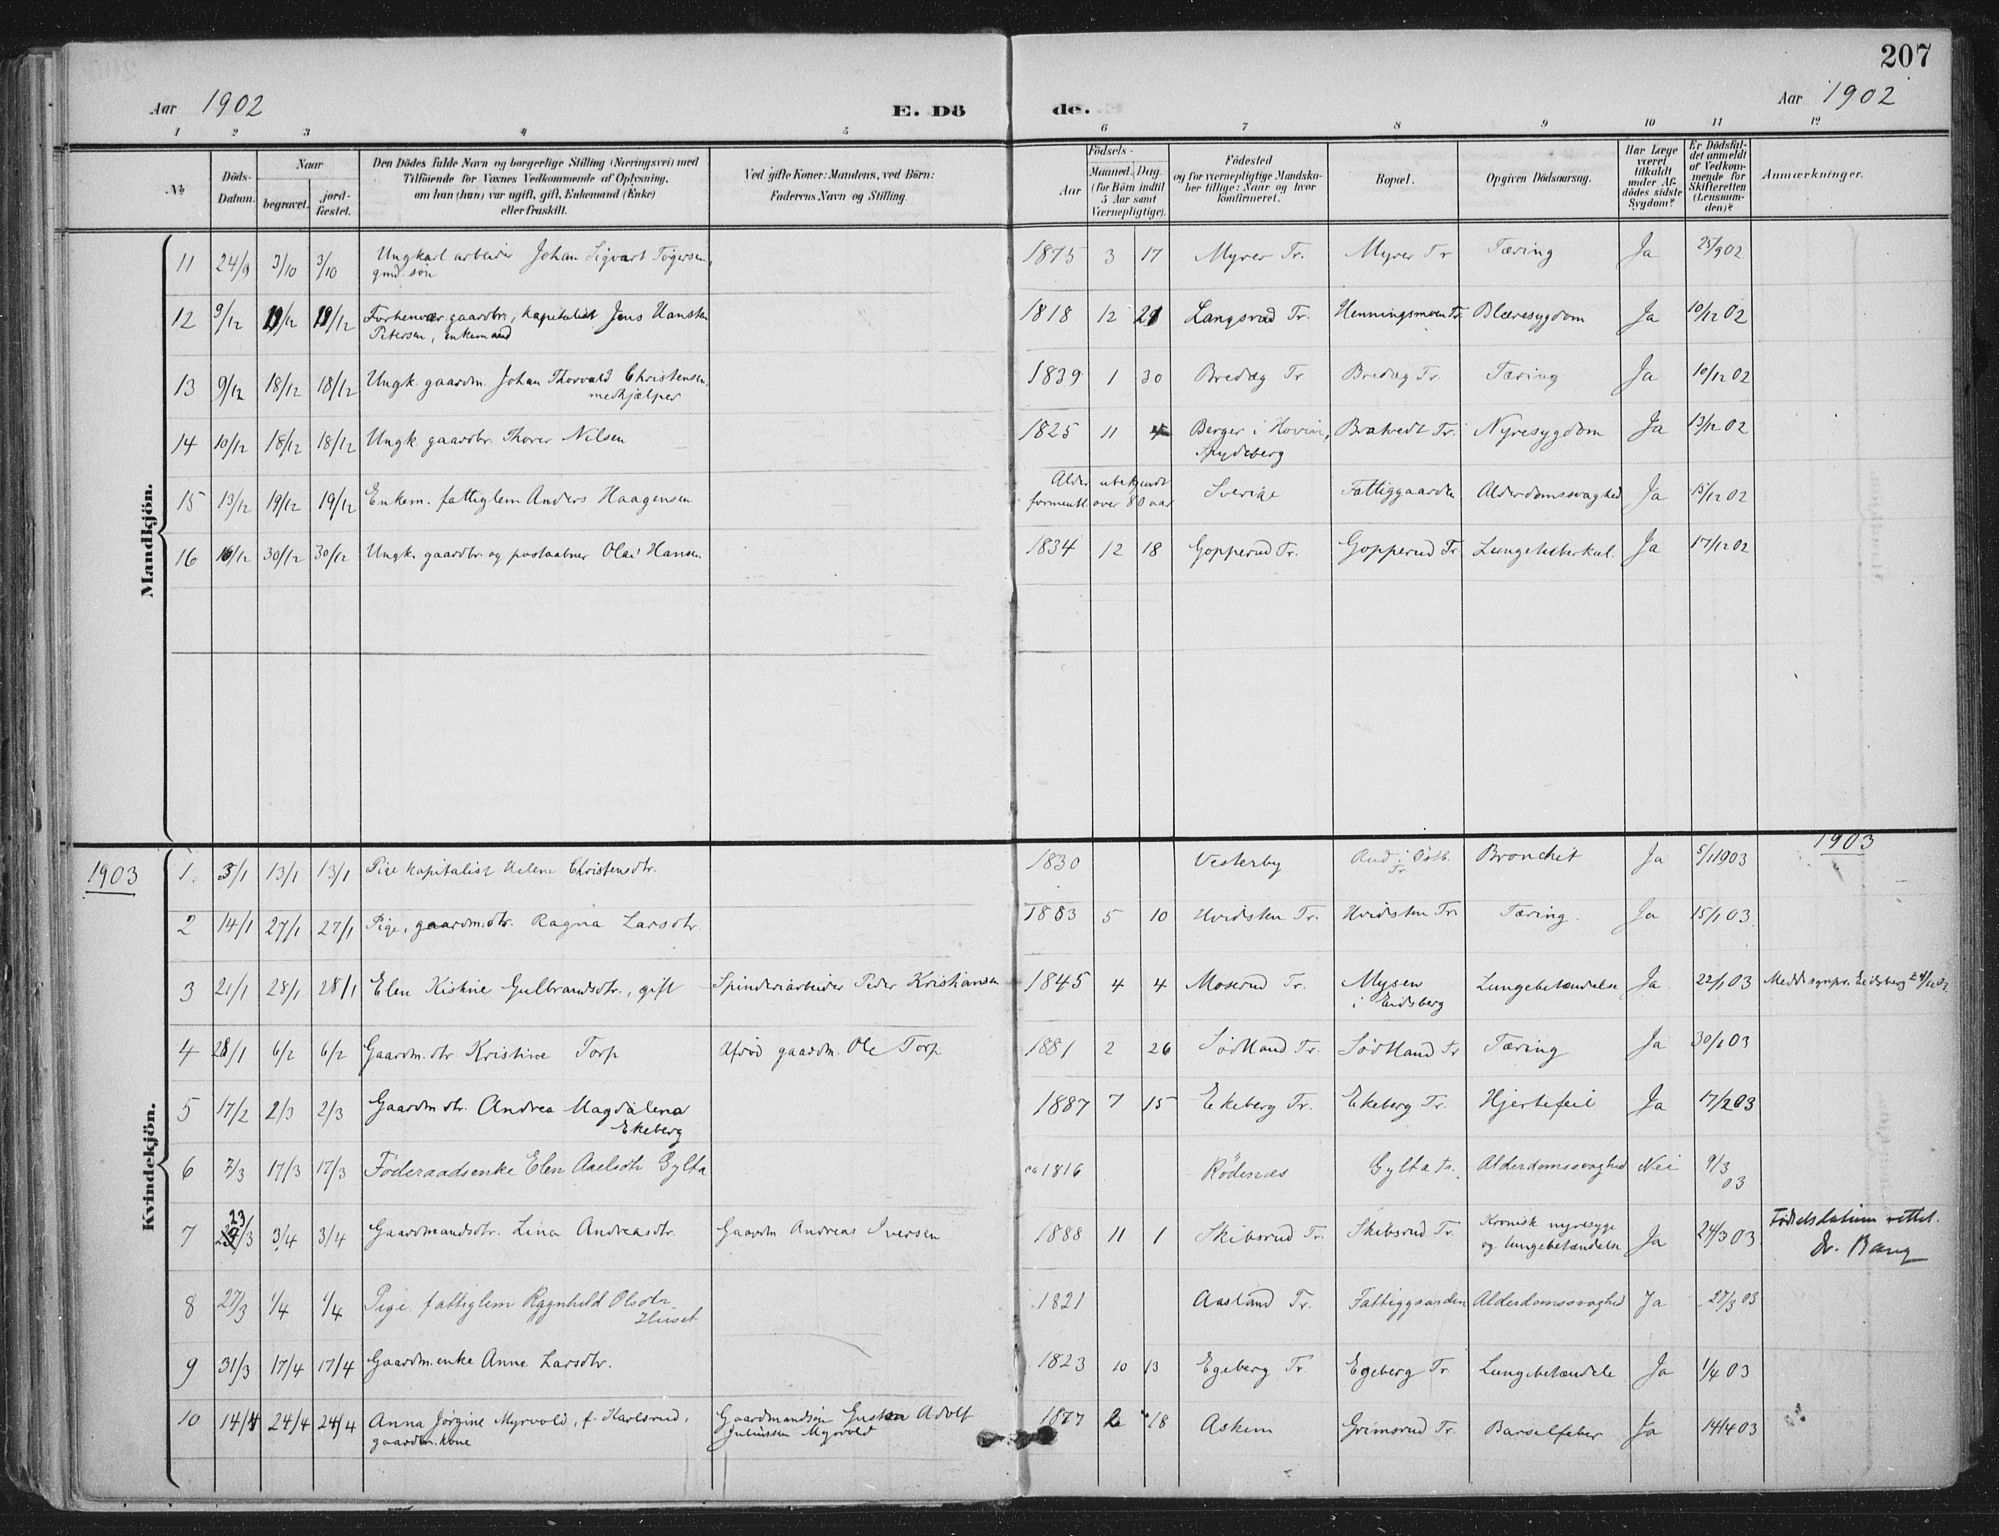 207
Aar 1902 E. Dö de. Aar 1902
1 2 3 4 5 6 7 8 9 10 11 12
№ Döds-Datum. Naar begravet. jord-fæstet. Den Dödes fulde Navn og borgerlige Stilling (Næringsvei) med Tilföiende for Voxnes Vedkommende af Oplysning, om han (hun) var ugift, gift, Enkemand (Enke) eller fraskilt. Ved gifte Koner: Mandens, ved Börn: Faderens Navn og Stilling. Födsels- Aar Maaned. Dag. (for Börn indtil 5 Aar samt Værnepligtige). Födested og for værnepligtige Mandska-ber tillige: Naar og hvor konfirmeret. Bopæl. Opgiven Dödsaarsag. Har Læge været tilkaldt under Af-dödes sidste Sygdom? Er Dödsfal-det anmeldt af Vedkom-mende for Skifteretten (Lensman-den)? Anmærkninger.
Mandkjön.
11 24/9 3/10 3/10 Ungkarl arbeider Johan Sigvart Togersen, gmd. søn 1875 3 17 Myrer Tr. Myrer Tr Tæring Ja 25/9 02
12 9/12 19/12 19/12 Forhenvær. gaardbr., kapitalist Jens Hansten Petersen, enkemand 1818 12 21 Langsrud Tr. Henningsmoen Tr. Blæresygdom Ja 10/12 02
13 9/12 18/12 18/12 Ungk. gaardm. Johan Thorvald Christensen, medhjælper 1839 1 30 Bredæg Tr Bredæg Tr. Tæring Ja 10/12 02
14 10/12 18/12 18/12 Ungk gaardbr. Thorer Nilsen 1825 11 4 Berger i Hovin, Spydeberg Bratvedt Tr. Nyresygdom Ja 13/12 02
15 13/12 19/12 19/12 Enkem. fattiglem Anders Haagensen Alder ubekjendt formentl. over 80 aar Sverige Fattiggaarden Alderdomssvaghed Ja 15/12 02
16 16/12 30/12 30/12 Ungk. gaardbr. og postaabner Olai Hansen 1834 12 18 Gopperud Tr. Gopperud Tr. Lungetuberkul. Ja 17/12 02
1903 1903
Kvindekjön.
1. 5/1 13/1 13/1 Pige kapitalist Helene Christensdtr. 1830 Vesterby Tr Bronchit Ja 5/1 1903
2 14/1 27/1 27/1 Pige, gaardm.dtr. Ragna Larsdtr. 1883 5 10 Hvidsten Tr. Hvidsten Tr. Tæring. Ja 15/1 03
3 21/1 28/1 28/1 Elen Kistine Gulbrandsdtr., gift Spinderiarbeider Peder Kristiansen 1845 4 4 Moserud Tr. Mysen i Eidsberg Lungebetændelse Ja 22/1 03 Medd. sognpr. Eidsberg
4 28/1 6/2 6/2 Gaardm.dtr. Kristine Torp Afdød gaardm. Ole Torp 1881 2 26 Tr. Tr Tæring Ja 30/1 03
5 17/2 2/3 2/3 Gaardm dtr. Andrea Magdalena Ekeberg 1887 7 15 Ekeberg Tr. Ekeberg Tr. Hjertefeil Ja 17/2 03
6 7/3 17/3 17/3 Föderaadsenke Elen Axelsdtr Gylta ca 1816 Rödenæs Gylta Tr. Alderdomssvaghed Nei 9/3 03
7 23/3 3/4 3/4 Gaardmandsdtr. Lina Andreasdtr. Gaardm Andreas Iversen 1888 11 1 Skibsrud Tr. Skibsrud Tr. Kronisk nyresyge og lungebetændelse Ja 24/3 03 Fødselsdatum rettet. Dr. Bang
8 27/3 1/4 1/4 Pige. fattiglem Ragnhild Olsdtr Huset 1821 Aasland Tr. Fattiggaarden Alderdomssvaghed Ja 27/3 03
9 31/3 17/4 17/4 Gaardm.enke Anne Larsdtr. 1823 10 13 Egeberg Tr. Egeberg Tr. Lungebetændelse Ja 1/4 03
10 14/4 24/4 24/4 Anna Jørgine Myrvold, f. Karlsrud, gaardm.kone Gaardmandssøn Gustav Adolf Juliussen Myrvold 1877 2 18 Askim Grimsrud Tr. Barselfeber Ja 14/4 03